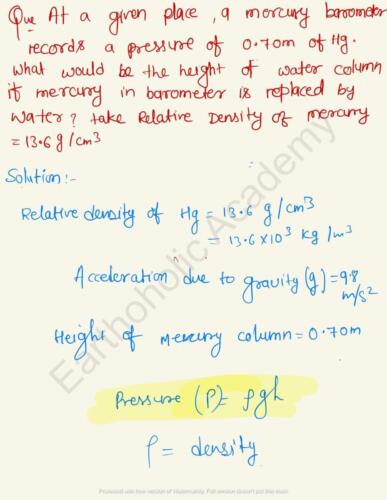 Que At a given place, a mercury barometer
records a pressure of 0.70m of Hg.
What would be the height of water column
if mercury in barometer is replaced by
Water? take Relative Density of mercury
= 13.6 g/cm3
Solution:-
Relative density of Hg = 13.6 g/cm3
= 13.6×10³ kg/m3
Acceleration due to gravity (g) = 9.8
m/s2
Height of mercury column = 0.70m
Pressure (P)= ρgh
ρ = density
Earthoholic Academy